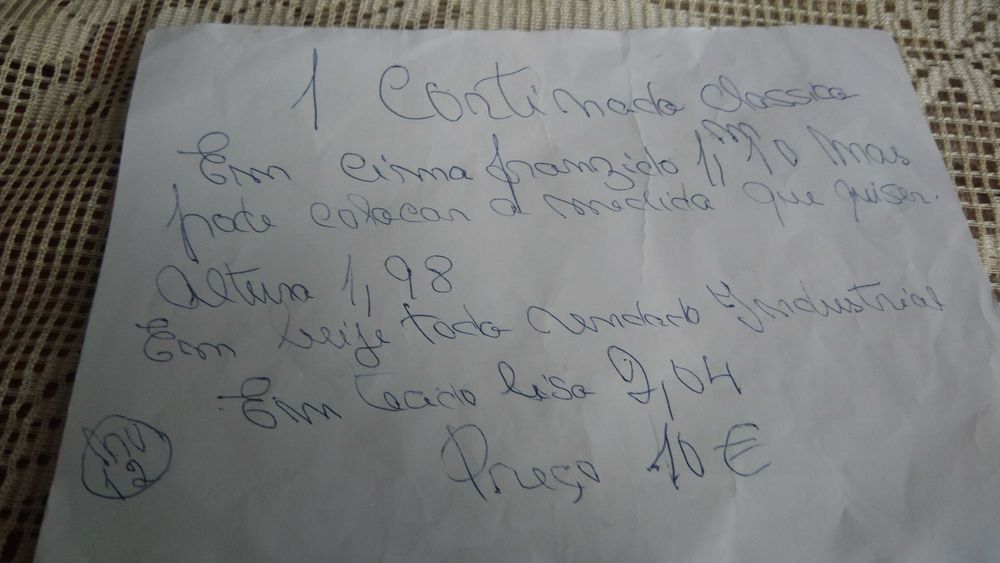 1 Cortinado classico
Em cima franzido 1,m70 mas
pode colocar a medida que quiser.
Altura 1,98
Em beije todo rendado Industrial
Em tecido liso 2,04
Preço 10 €
nº
12